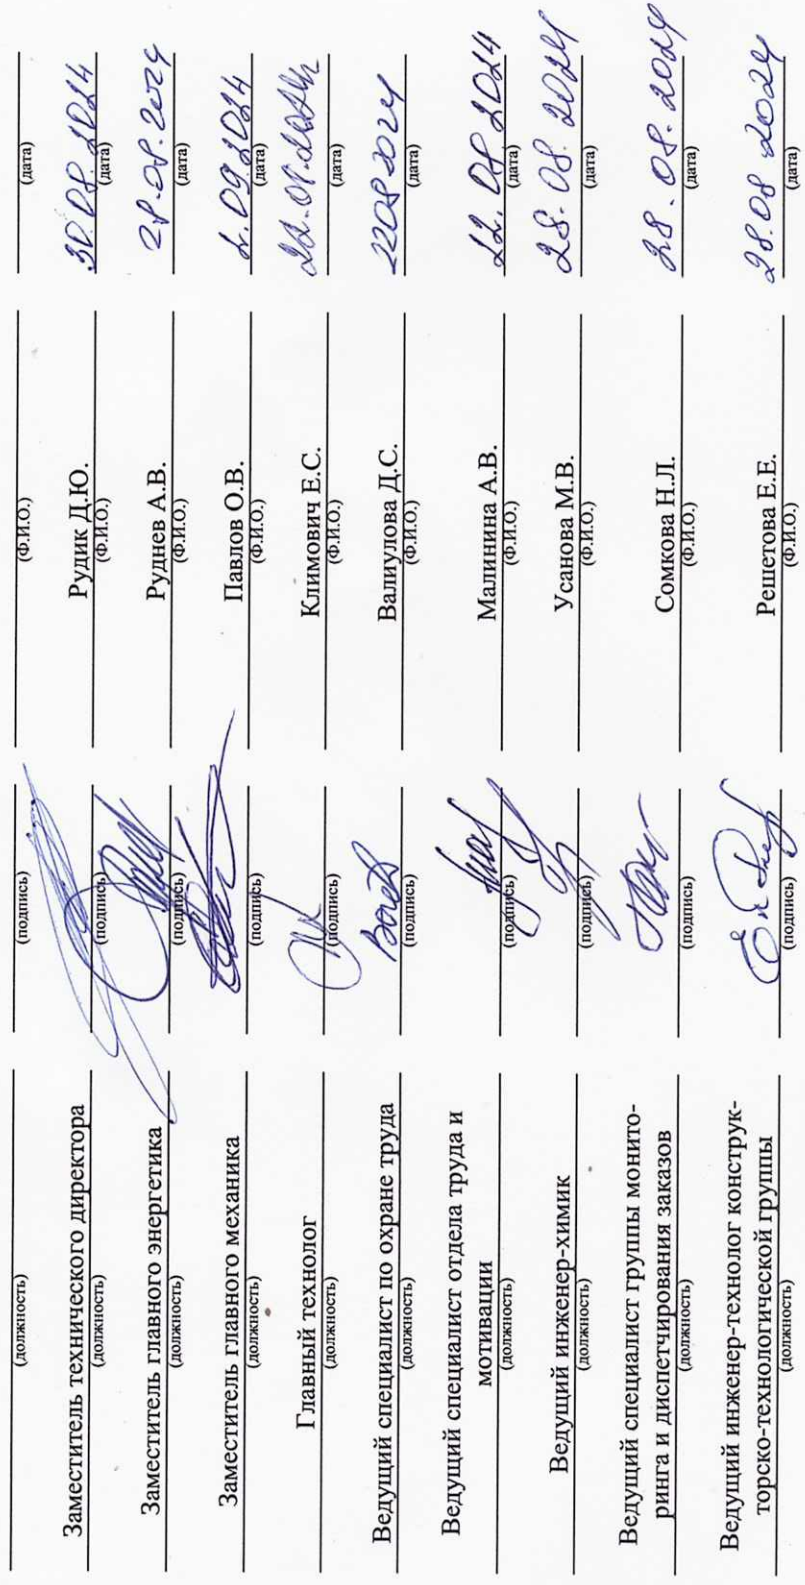 (должность) (подпись) (Ф.И.О.) (дата)
Заместитель технического директора Рудик Д.Ю. 30.08.2024
(должность) (подпись) (Ф.И.О.) (дата)
Заместитель главного энергетика Руднев А.В. 28.08.2024
(должность) (подпись) (Ф.И.О.) (дата)
Заместитель главного механика Павлов О.В. 2.09.2024
(должность) (подпись) (Ф.И.О.) (дата)
Главный технолог Климович Е.С.
(должность) (подпись) (Ф.И.О.) (дата)
Ведущий специалист по охране труда Валиулова Д.С. 22.08.2024
(должность) (подпись) (Ф.И.О.) (дата)
Ведущий специалист отдела труда и
мотивации Малинина А.В. 22.08.2024
(должность) (подпись) (Ф.И.О.) (дата)
Ведущий инженер-химик Усанова М.В. 28.08.2024
(должность) (подпись) (Ф.И.О.) (дата)
Ведущий специалист группы монито-
ринга и диспетчирования заказов Сомкова Н.Л. 28.08.2024
(должность) (подпись) (Ф.И.О.) (дата)
Ведущий инженер-технолог конструк-
торско-технологической группы Решетова Е.Е. 28.08 2024
(должность) (подпись) (Ф.И.О.) (дата)